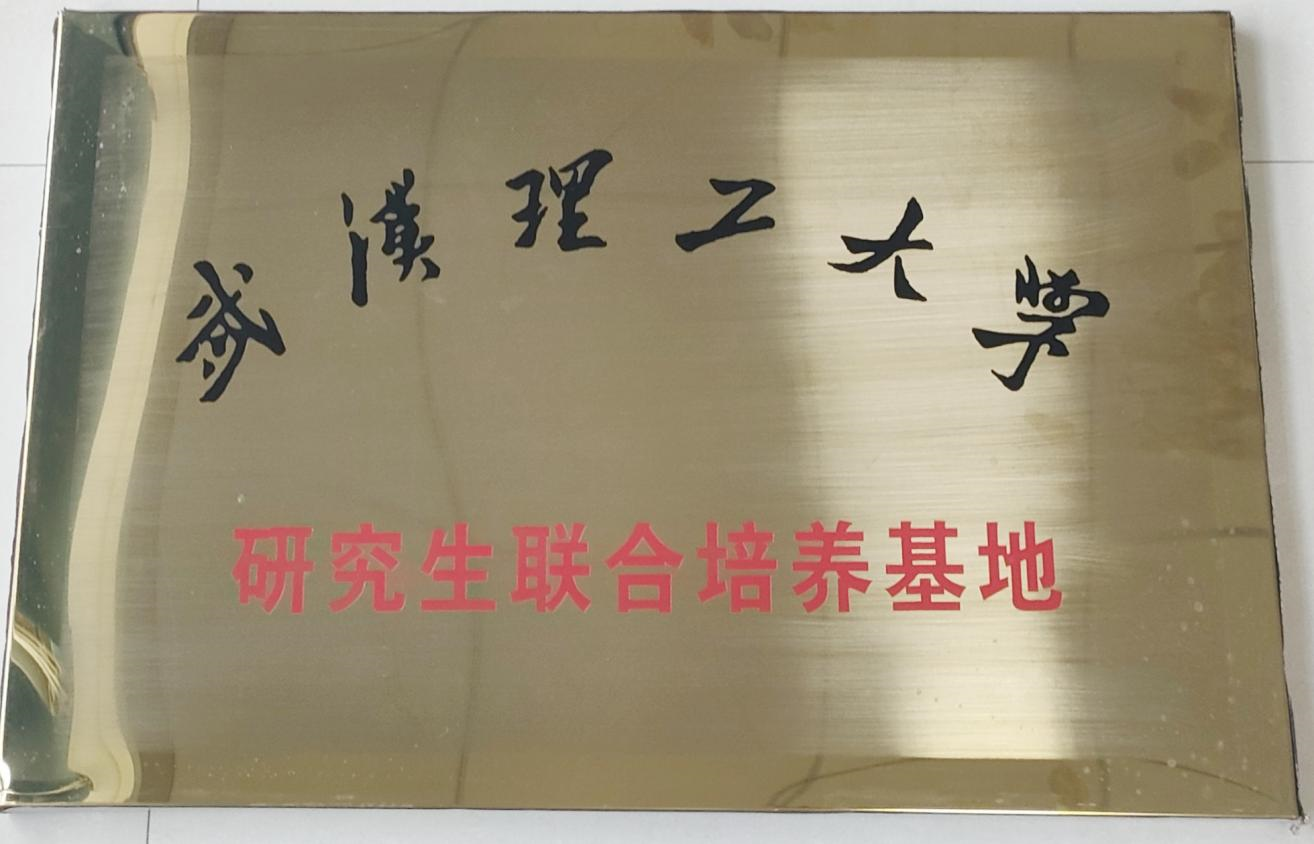 武漢理工大学
研究生联合培养基地